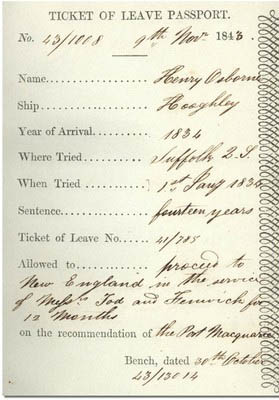 TICKET OF LEAVE PASSPORT.
No. 43/1008 9th Novr 1843.
Name.................. Henry Osborne
Ship.................. Hooghley
Year of Arrival............. 1834
Where Tried............. Suffolk Q. S.
When Tried ............. 1st Jany 1834
Sentence................ fourteen years
Ticket of Leave No...... 41/785
Allowed to ............. proceed to
New England in the service
of Messrs Tod and Fenwick for
12 Months
on the recommendation of the Port Macquarie
Bench, dated 30th October
43/13014